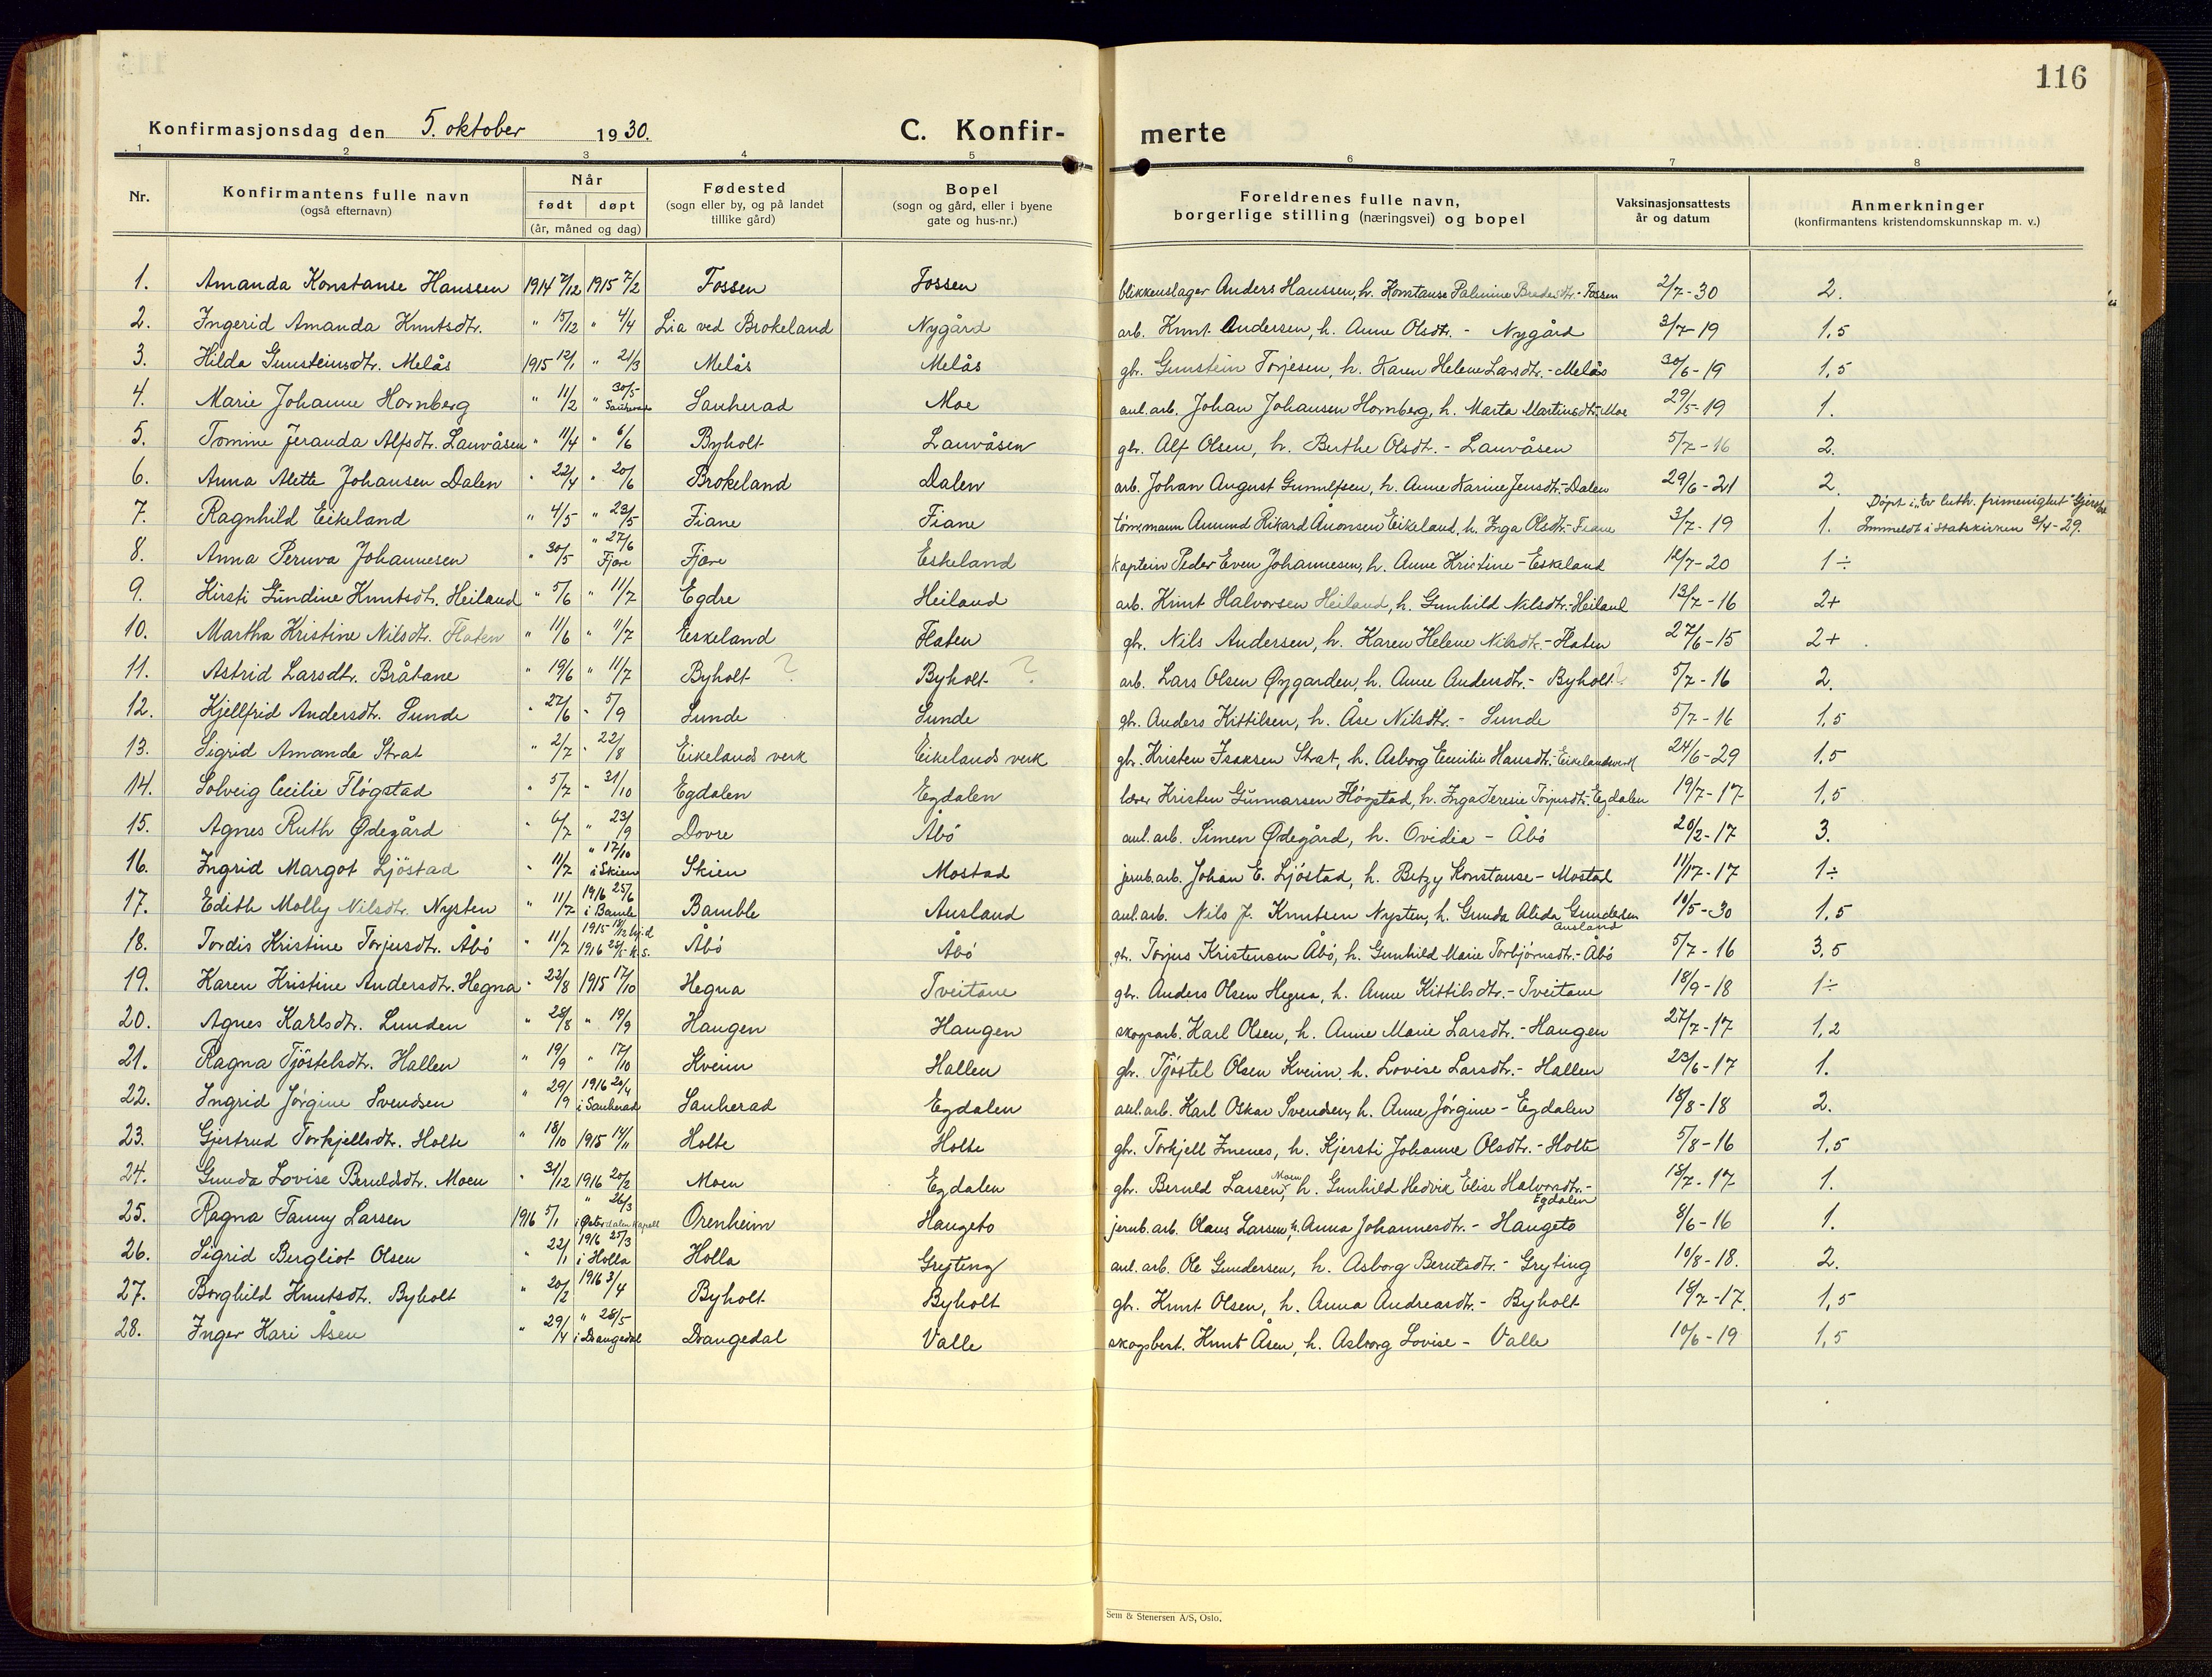 116
Konfirmasjonsdag den 5. oktober 1930. C. Konfir- merte
1 2 3 4 5 6 7 8
Nr. Konfirmantens fulle navn (også efternavn) Når født døpt (år, måned og dag) Fødested (sogn eller by, og på landet tillike gård) Bopel (sogn og gård, eller i byene gate og hus-nr.) Foreldrenes fulle navn, borgerlige stilling (næringsvei) og bopel Vaksinasjonsattests år og datum Anmerkninger (konfirmantens kristendomskunnskap m. v.)
1. Amanda Konstanse Hanssen 1914 7/12 1915 7/2 Fossen Fossen blikkenslager Anders Hanssen, h. Konstanse Palmine - Fossen 2/7-30 2.
2. Ingerid Amanda Knutsdtr. " 15/12 " 4/4 Lia ved Brokeland Nygård arb. Knut Andersen, h. Anne Olsdtr. - Nygård 3/7-19 1,5
3. Hilda Gunsteinsdtr. Melås 1915 12/1 " 21/3 Melås Melås gbr. Gunstein Torjesen, h. Karen Helene Larsdtr. - Melås 30/6-19 1,5
4. Marie Johanne Hornberg " 11/2 " 30/5 Sauherad Sauherad Moe anl. arb. Johan Johansen Hornberg, h. Marta Martinsdtr. Moe 29/5-19 1.
5. Tomine Jeranda Alfsdtr. Lauvåsen " 11/4 " 6/6 Byholt Lauvåsen gbr. Alf Olsen, h. Berthe Olsdtr. - Lauvåsen 5/7-16 2.
6. Anna Alette Johansen Dalen " 22/4 " 20/6 Brokeland Dalen arb. Johan August Gunulfsen, h. Anne Karine Jensdtr. - Dalen 29/6-21 2.
7. Ragnhild Eikeland " 4/5 " 23/5 Fiane Fiane Amund Rikard Ånonsen Eikeland, h. Inga Olsdtr. - Fiane 3/7-19 1. Døpt i "ev. luth. frimenighet" Gjerstad
Innmeldt i statskirken 9/4-29.
8. Anna Peruva Johannesen " 30/5 " 27/6 Fjære Fjære Eskeland kaptein Peder Even Johannesen, h. Anne Kristine - Eskeland 12/7-20 1÷
9. Kirsti Gundine Knutsdtr. Heiland " 5/6 " 11/7 Egdre Heiland arb. Knut Halvorsen Heiland, h. Gunhild Nilsdtr. - Heiland 13/7-16 2+
10. Martha Kristine Nilsdtr. Flaten " 11/6 " 11/7 Eskeland Flaten gbr. Nils Andersen, h. Karen Helene Nilsdtr. - Flaten 27/6-15 2+
11. Astrid Larsdtr. Bråtane " 19/6 " 11/7 Byholt ? Byholt ? arb. Lars Olsen Øygarden, h. Anne Andersdtr. - Byholt ? 5/7-16 2.
12. Kjellfrid Andersdtr. Sunde " 27/6 " 5/9 Sunde Sunde gbr. Anders Kittilsen, h. Åse Nilsdtr. - Sunde 5/7-16 1,5
13. Sigrid Amanda Strat " 2/7 " 22/8 Eikelands verk Eikelands verk gbr. Kristen Isaksen Strat, h. Asborg Emilie Hansdtr. - Eikelandsverk 24/6-29 1,5
14. Solveig Cecilie Fløgstad " 5/7 " 31/10 Egdalen Egdalen lærer Kristen Gunnarsen Fløgstad, h. Inga Teresie Torjusdtr. - Egdalen 19/7-17 1,5
15. Agnes Ruth Ødegård " 6/7 " 23/9 Dovre Åbö anl. arb. Simen Ødegård, h. Ovidia - Åbö 20/2-17 3.
16. Ingrid Margot Ljöstad " 11/7 " 17/10 i Skien Skien Mostad jernb. arb. Johan E. Ljöstad, h. Betzy Konstanse - Mostad 11/17-17 1÷
17. Edith Molly Nilsdtr. Nysten " 11/7 1916 25/6 i Bamle Bamble Ausland anl. arb. Nils J. Knutsen Nysten, h. Gunda Alida Gundersen Ausland 10/5-30 1,5
18. Tordis Kristine Torjusdtr. Åbö " 11/7 1915 18/12 hj.d 1916 28/5 k.s. Åbö Åbö gbr. Torjus Kristensen Åbö, h. Gunhild Marie Torbjörnsdtr. - Åbö 5/7-16 3,5
19. Karen Kristine Andersdtr. Hegna " 22/8 1915 17/10 Hegna Tveitane gbr. Anders Olsen Hegna, h. Anne Kittilsdtr. - Tveitane 18/9-18 1÷
20. Agnes Karlsdtr. Lunden " 28/8 " 19/9 Haugen Haugen skogsarb. Karl Olsen, h. Anne Marie Larsdtr. - Haugen 27/7-17 1,2
21. Ragna Tjöstelsdtr. Hallen " 19/9 " 17/10 Kveim Hallen gbr. Tjöstel Olsen Kveim, h. Lovise Larsdtr. - Hallen 23/6-17 1.
22. Ingrid Jörgine Svendsen " 29/9 1916 20/4 i Sauherad Sauherad Egdalen anl. arb. Karl Oskar Svendsen, h. Anne Jörgine - Egdalen 18/8-18 2.
23. Gjertrud Torkjellsdtr. Holte " 18/10 1915 14/11 Holte Holte gbr. Torkjell Imenes, h. Kjersti Johanne Olsdtr. - Holte 5/8-16 1,5
24. Gunda Lovise Beruldsdtr. Moen " 31/12 1916 20/2 Moen Egdalen gbr. Beruld Larsen Moen, h. Gunhild Hedvik Elise Halvorsdtr. - Egdalen 18/7-17 1.
25. Ragna Fanny Larsen 1916 5/1 " 26/3 i Østerdalen kapell Orenheim Haugeto jernb. arb. Olaus Larsen, h. Anna Johannesdtr. - Haugeto 8/6-16 1.
26. Sigrid Bergliot Olsen " 22/1 1916 25/3 i Holla Holla Gryting anl. arb. Ole Gundersen, h. Asborg Berntsdtr. - Gryting 10/8-18. 2.
27. Borghild Knutsdtr. Byholt " 20/2 1916 3/4 Byholt Byholt gbr. Knut Olsen, h. Anna Andreasdtr. - Byholt 18/7-17. 1,5
28. Inger Kari Åsen " 29/4 " 28/5 i Drangedal Drangedal Valle skogsbest. Knut Åsen, h. Asborg Lovise - Valle 10/6-19 1,5
Sem & Stenersen A/S, Oslo.